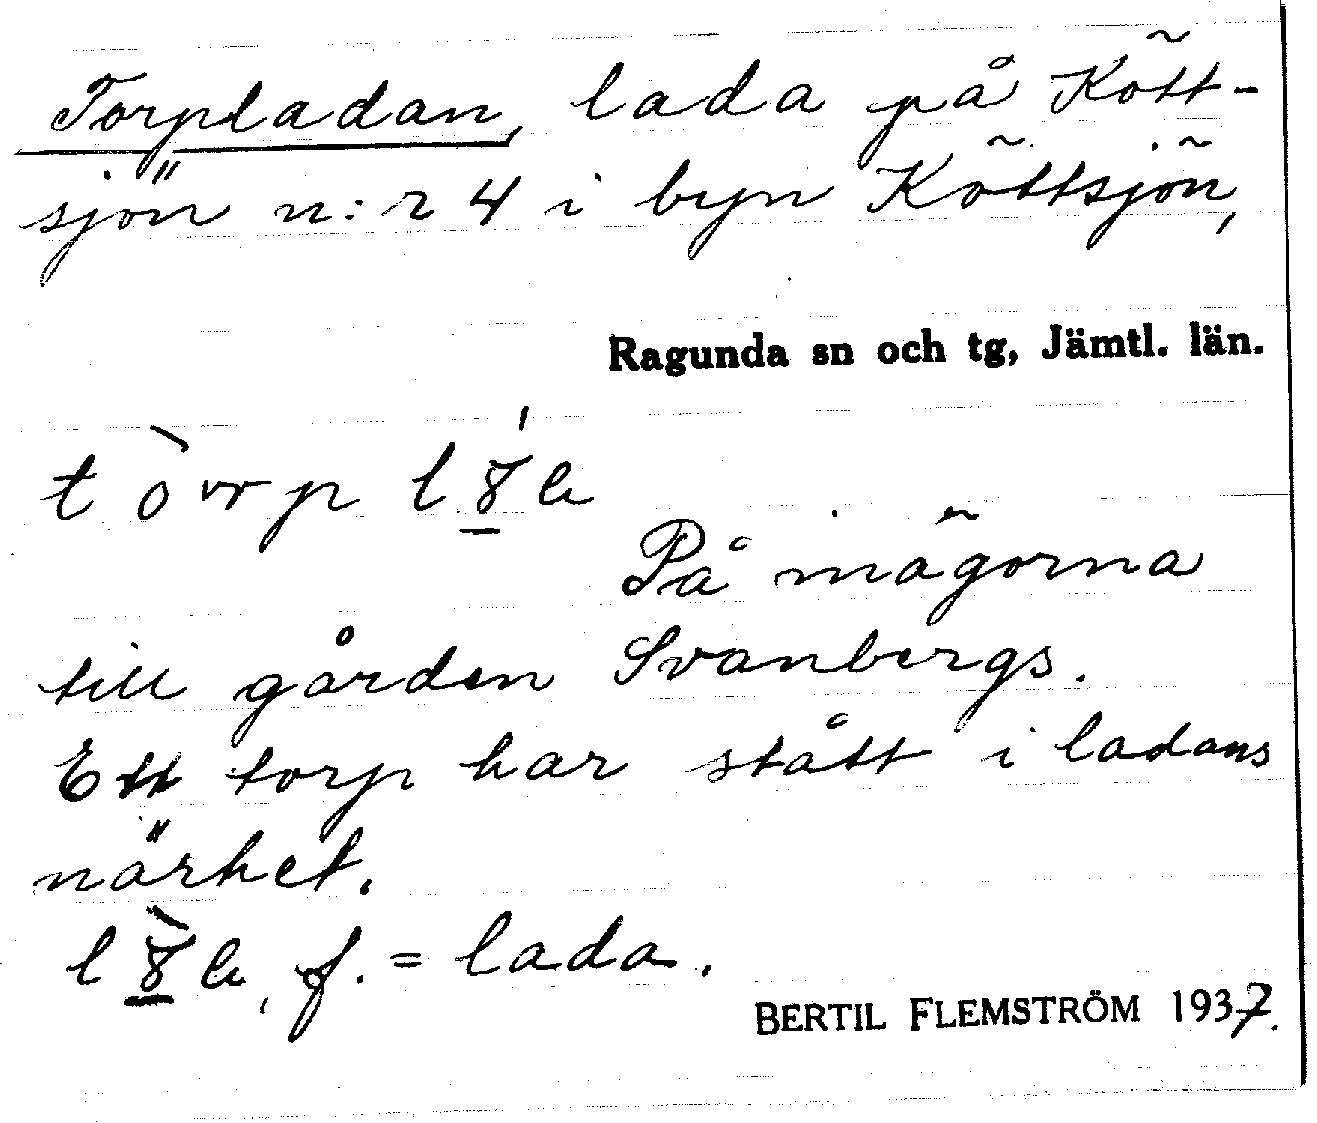 Torpladan, lada på Kött-
sjön n:r 4 i byn Köttsjön,
Ragunda sn och tg, Jämtl. län.
På mägorna
till gården Svanbergs.
Ett torp har stått i ladans
närhet.
f. = lada.
BERTIL FLEMSTRÖM 1937.